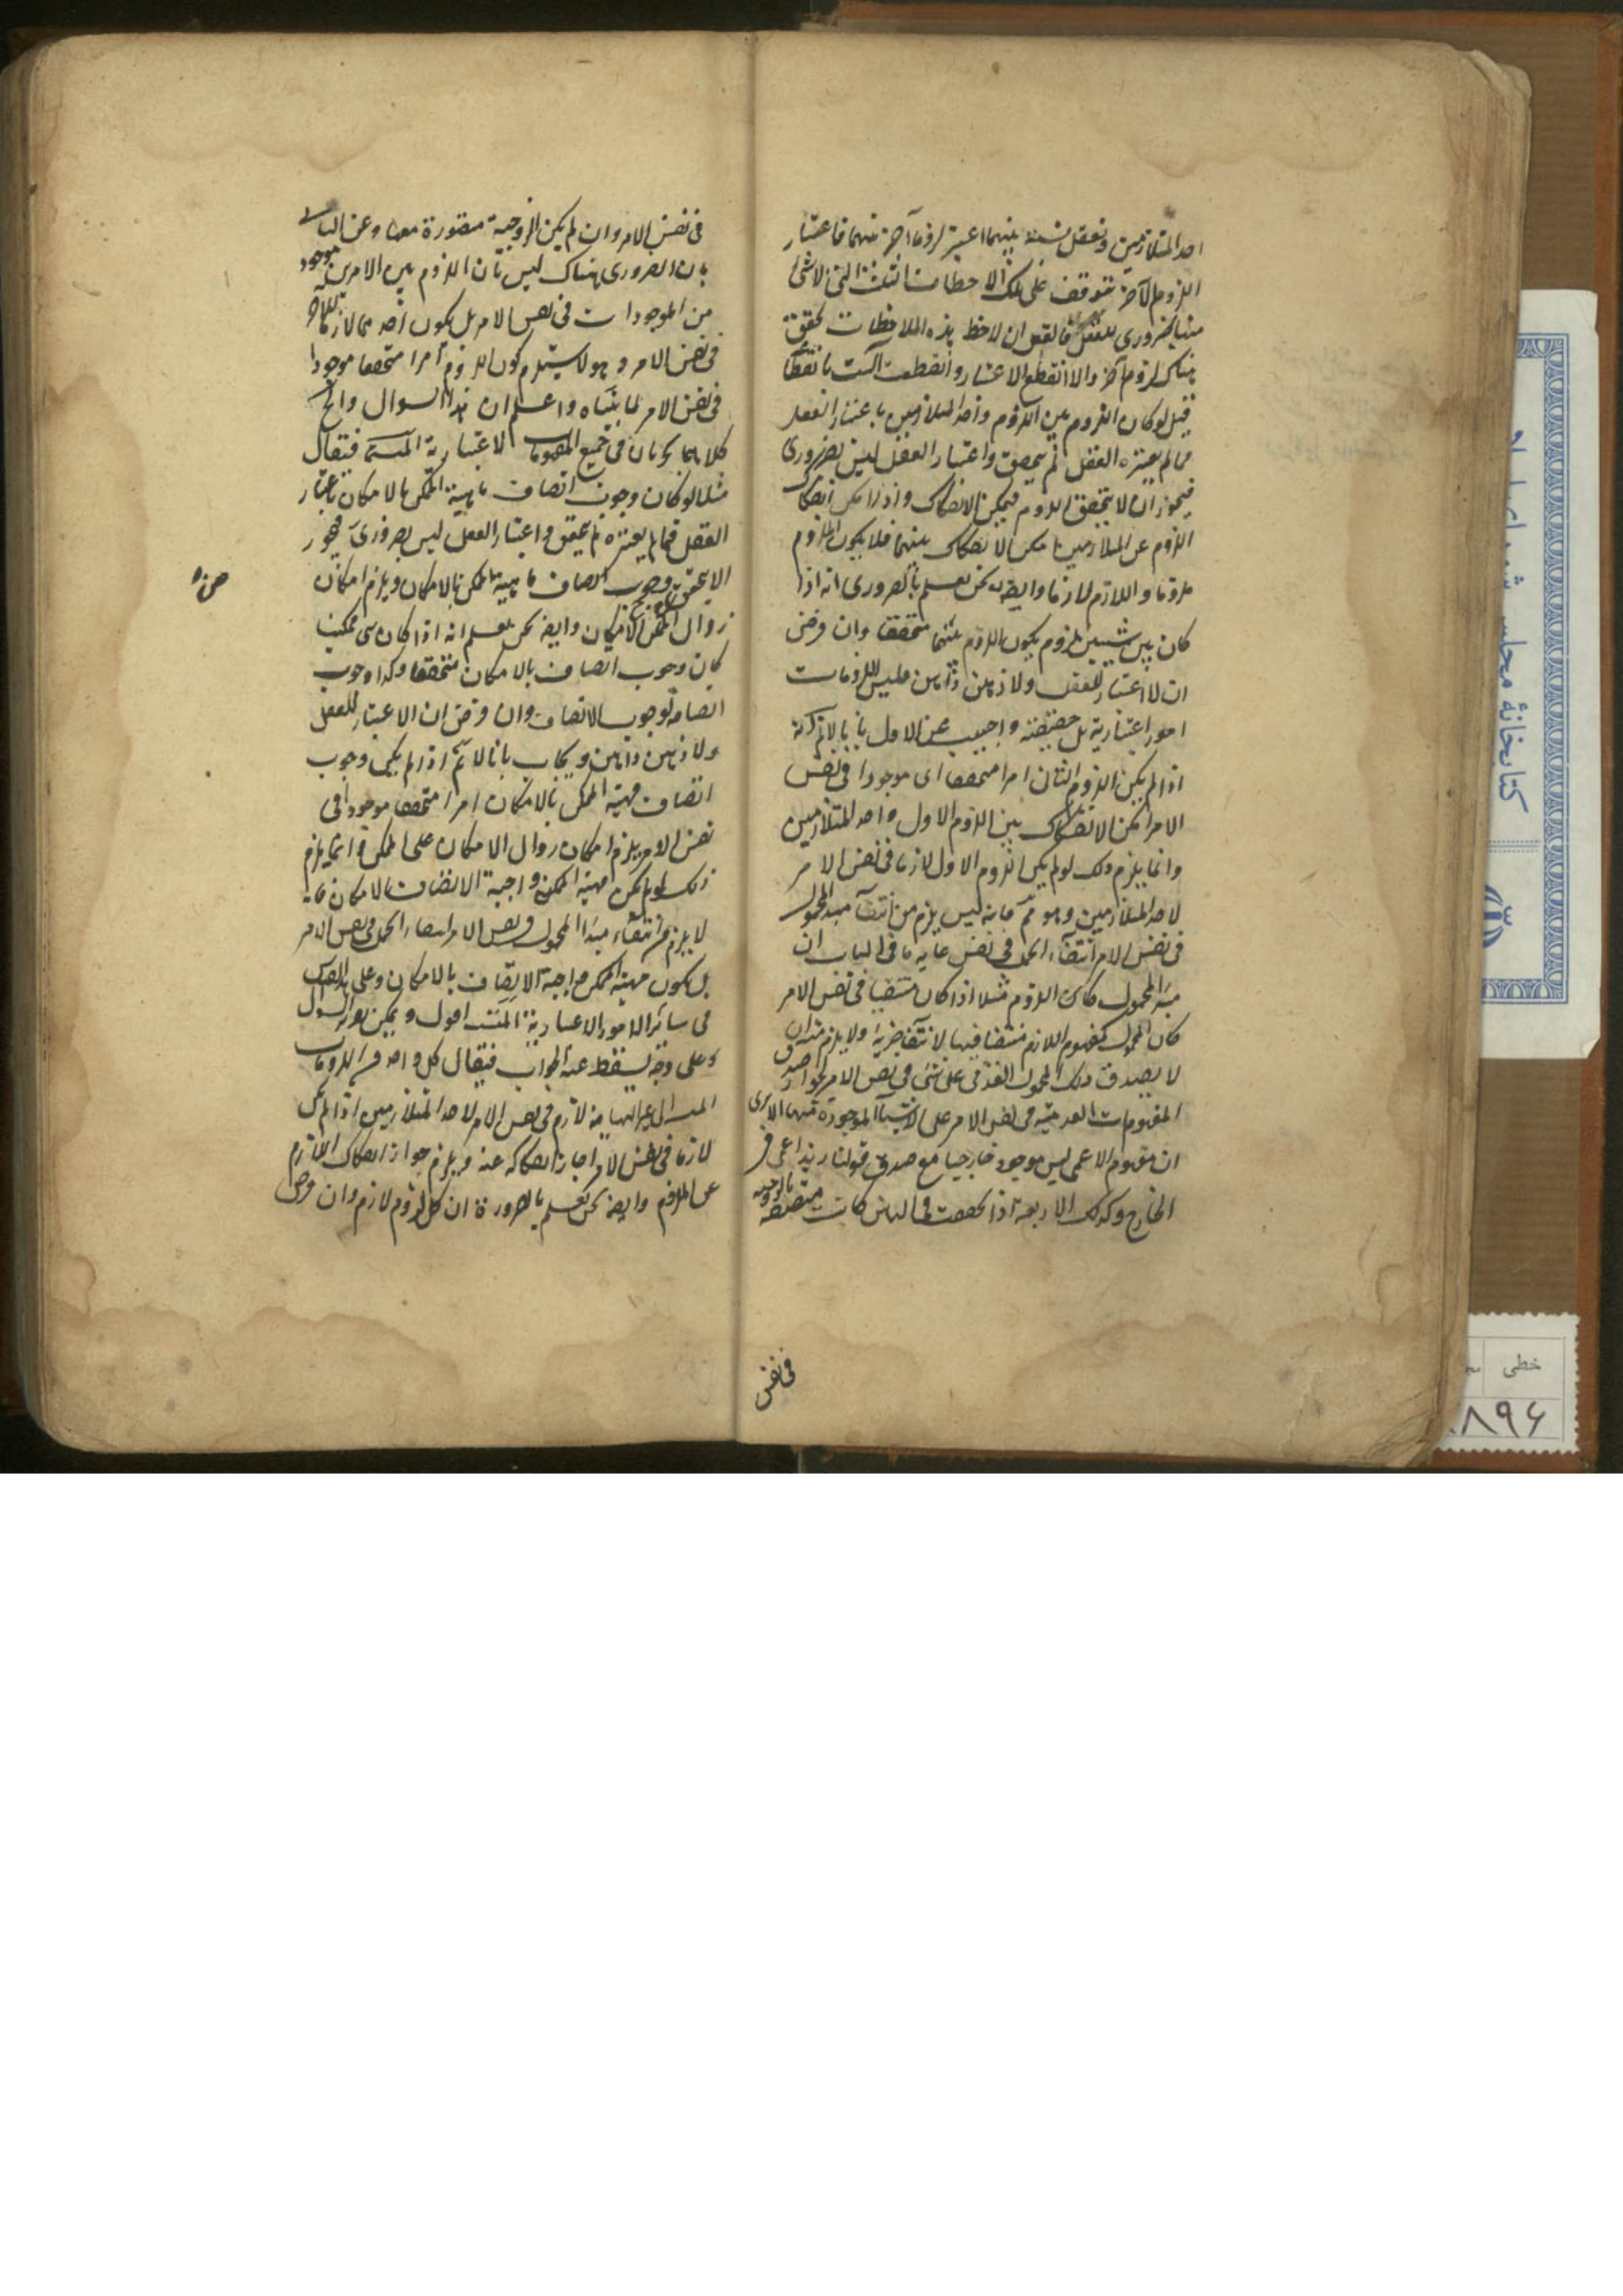 احد المتلازمين وتعقل نسبة بينهما اعتبر لزوما آخر بينهما فاعتبار
اللزوم الآخر متوقف على تلك الملاحظات الثلث التى لا شى
منها بضرورى للعقل فالعقل ان لاحظ هذه الملاحظات تحقق
هناك لزوم آخر والا انقطع الاعتبار وانقطعت السلسلة بانقطاعه
قيل لو كان اللزوم بين اللزوم واحد المتلازمين باعتبار العقل
فما لم يعتبره العقل لم يتحقق واعتبار العقل ليس بضرورى
فيجوز ان لا يتحقق اللزوم فيمكن الانفكاك واذا امكن انفكاك
اللزوم عن المتلازمين امكن الانفكاك بينهما فلا يكون الملزوم
ملزوما واللازم لازما وايضا نحن نعلم بالضرورى انه اذا
كان بين شيئين لزوم يكون اللزوم بينهما متحققا وان فرض
ان لا اعتبار للعقل ولا ذهن ذاهن فليس اللزومات
امورا اعتبارية بل حقيقية واجيب عن الاول بانا لا نم انه
اذا لم يكن اللزوم الثانى امرا متحققا اى موجودا فى نفس
الامر امكن الانفكاك بين اللزوم الاول واحد المتلازمين
وانما يلزم ذلك لو لم يكن اللزوم الاول لازما فى نفس الامر
لاحد المتلازمين وهو مم فانه ليس يلزم من انتفاء مبدا المحمول
فى نفس الامر انتفاء الحمل فى نفس غاية ما فى الباب ان
مبدا المحمول كان اللزوم مثلا اذا كان منتفيا فى نفس الامر
كان المحمول كمفهوم اللازم منتفيا فيها لانتفاء جزئه ولا يلزم منه ان
لا يصدق ذلك المحمول العدمى على شى فى نفس الامر لجواز صدق
المفهومات العدمية فى نفس الامر على الاشياء الموجودة فيها الا ترى
ان مفهوم الاعمى ليس موجود خارجيا مع صدق قولنا زيد اعمى فى
الخارج وكذلك الاربعة اذا تحققت فى الذهن كانت متصفة بالزوجية
فى نفس
فى نفس الامر وان لم يكن الزوجية متصورة معها وعن الثانى
بان الضرورى هناك ليس بان اللزوم بين الامرين موجود
من الموجودات فى نفس الامر بل بكون احدهما لازما للآخر
فى نفس الامر وهو لا يستلزم كون اللزوم امرا متحققا موجودا
فى نفس الامر لما بيناه واعلم ان هذا السوال والجواب
كلاهما يجريان فى جميع المفهومات الاعتبارية المتسلسلة فيقال
مثلا لو كان وجوب اتصاف ماهية الممكن بالامكان باعتبار
العقل فما لم يعتبره لم يتحقق واعتبار العقل ليس بضرورى فيجوز
ان لا يتحقق وجوب اتصاف ماهية الممكن بالامكان ويلزم امكان
زوال الامكان وايضا نحن نعلم انه اذا كان شى ممكنا
كان وجوب اتصافه بالامكان متحققا وكذا وجوب
اتصافه بوجوب الاتصاف وان فرض ان لا اعتبار للعقل
ولا ذهن ذاهن ويجاب بانا لا نم انه اذا لم يكن وجوب
اتصاف مهية الممكن بالامكان امرا متحققا موجودا فى
نفس الامر يلزم امكان زوال الامكان على الممكن وانما يلزم
ذلك لو لم يكن مهية الممكن واجبة الاتصاف بالامكان فانه
لا يلزم من انتفاء مبدا المحمول فى نفس الامر انتفاء الحمل فى نفس الامر
بل يكون مهية الممكن واجبة الاتصاف بالامكان وعلى هذا القياس
فى سائر الامور الاعتبارية المتسلسلة اقول ويمكن تقرير السوال
على وجه يسقط عنه الجواب فيقال كل واحد من اللزومات
المتسلسلة الى غير النهاية لازم فى نفس الامر لاحد المتلازمين اذ لو لم يكن
لازما فى نفس الامر لجاز انفكاكه عنه ويلزم جواز انفكاك اللازم
عن الملزوم وايضا نحن نعلم بالضرورة ان كل لزوم لازم وان فرض
كتابخانۀ مجلس شورای
خطی
۸۹۶